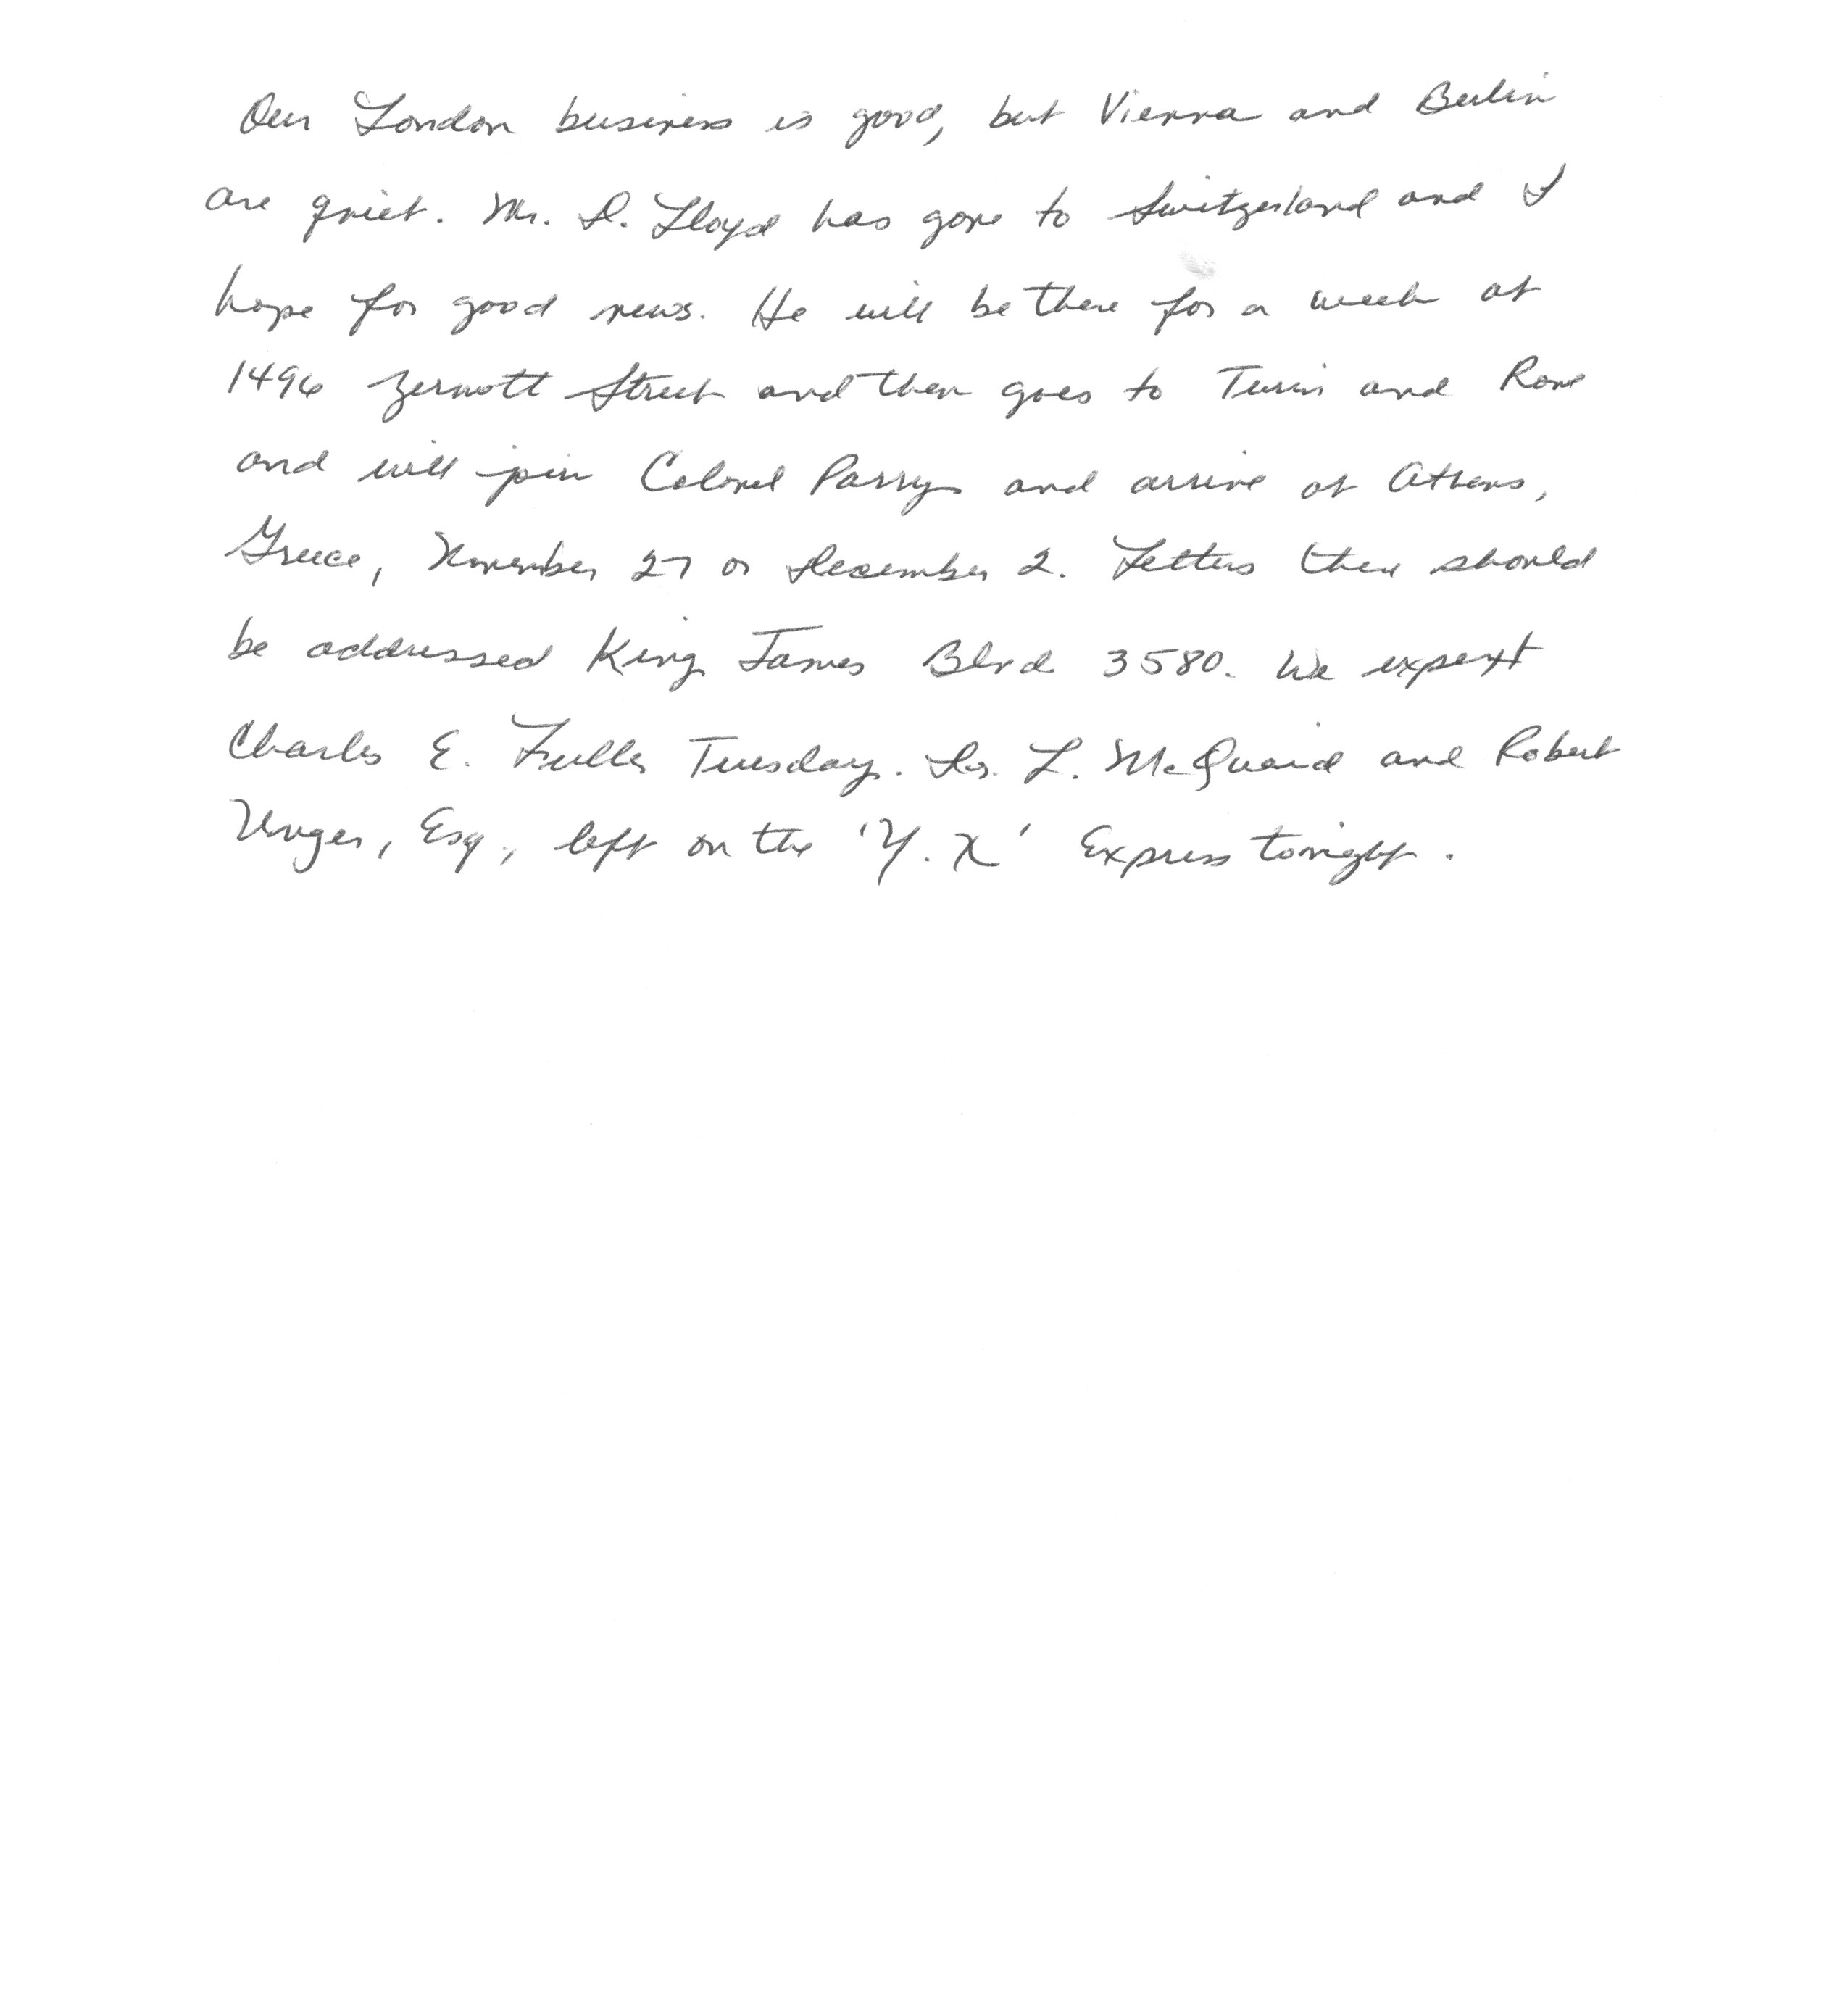 Our London business is good, but Vienna and Berlin
are quiet. Mr. D. Lloyd has gone to Switzerland and I
hope for good news. He will be there for a week at
1496 Zermott Street and then goes to Turin and Rome
and will join Colonel Parry and arrive at Athens,
Greece, November 27 or December 2. Letters there should
be addressed King James Blvd 3580. We expect
Charles E. Fuller Tuesday. Dr. L. McQuaid and Robert
Unger, Esq., left on the 'Y.X' Express tonight.